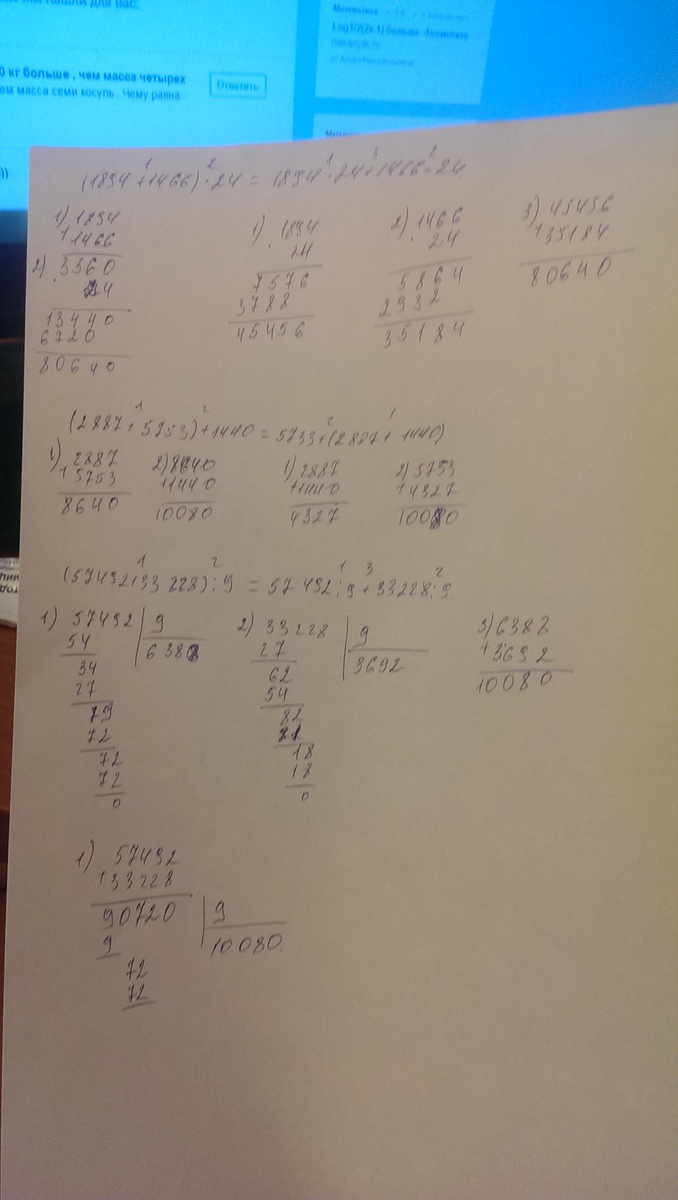 0 кг больше , чем масса четырех
ем масса семи косуль . Чему равна
Ответить
Математика
(1894+1466)·24 = 1894·24+1466·24
1) 1894
+1466
2) 3360
·24
13440
6720
80640
1) ·1894
24
7576
3788
45456
2) 1466
·24
5864
2932
35184
3) 45456
+35184
80640
(2887+5753)+1440=5733+(2887+1440)
1) 2887
+5753
8640
2) 8640
+1440
10080
1) 2887
+1440
4327
2) 5753
+4327
10080
(57492+33228):9 = 57492:9+33228:9
1) 57492 | 9
54 6388
34
27
79
72
72
72
0
2) 33228 | 9
27 3692
62
54
82
81
18
18
0
3) 6388
+3692
10080
1) 57492
+33228
90720 | 9
9 10080
72
72